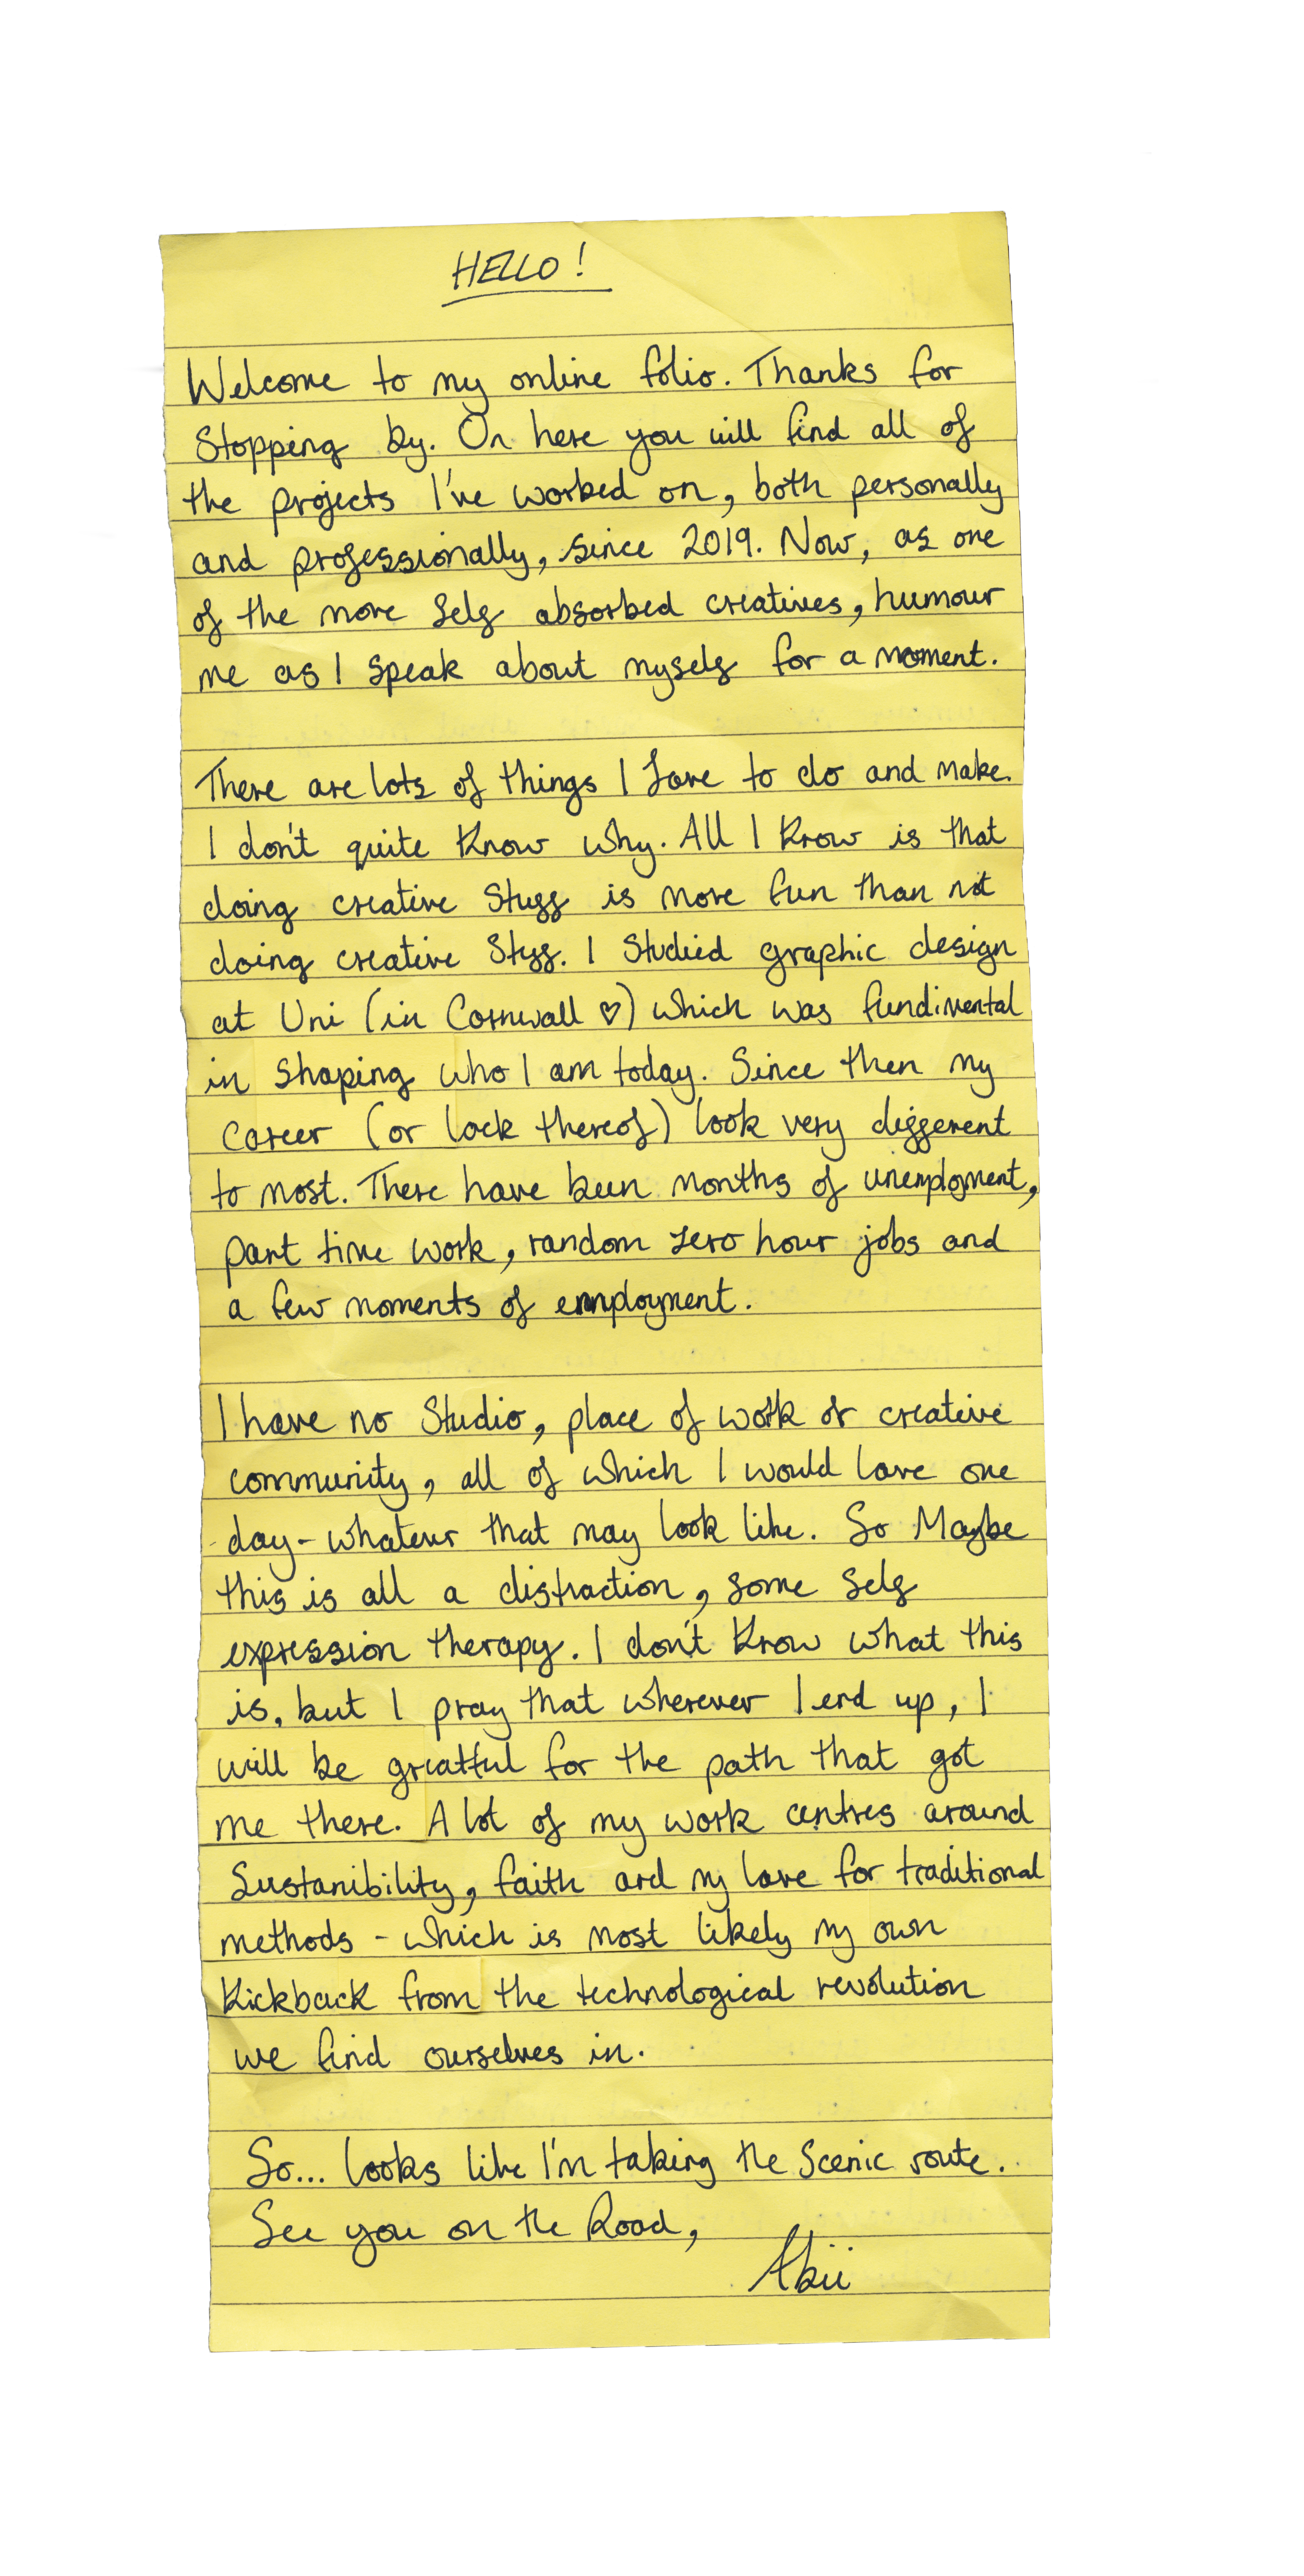 HELLO!
Welcome to my online folio. Thanks for
Stopping by. On here you will find all of
the projects I've worked on, both personally
and professionally, since 2019. Now, as one
of the more self absorbed creatives, humour
me as I speak about myself for a moment.
There are lots of things I love to do and make.
I don't quite know why. All I know is that
doing creative stuff is more fun than not
doing creative stuff. I studied graphic design
at Uni (in Cornwall ♡) which was fundimental
in shaping who I am today. Since then my
career (or lack thereof) look very different
to most. There have been months of unemployment,
part time work, random zero hour jobs and
a few moments of employment.
I have no Studio, place of work or creative
community, all of which I would love one
day - whatever that may look like. So Maybe
this is all a distraction, some self
expression therapy. I don't know what this
is, but I pray that wherever I end up, I
will be greatful for the path that got
me there. A lot of my work centres around
Sustanibility, faith and my love for traditional
methods - which is most likely my own
Kickback from the technological revolution
we find ourselves in.
So... looks like I'm taking the Scenic route.
See you on the Road,
Abii